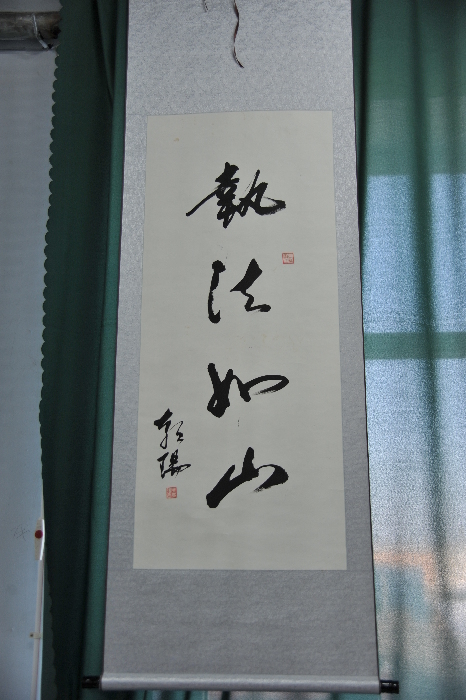 執法如山